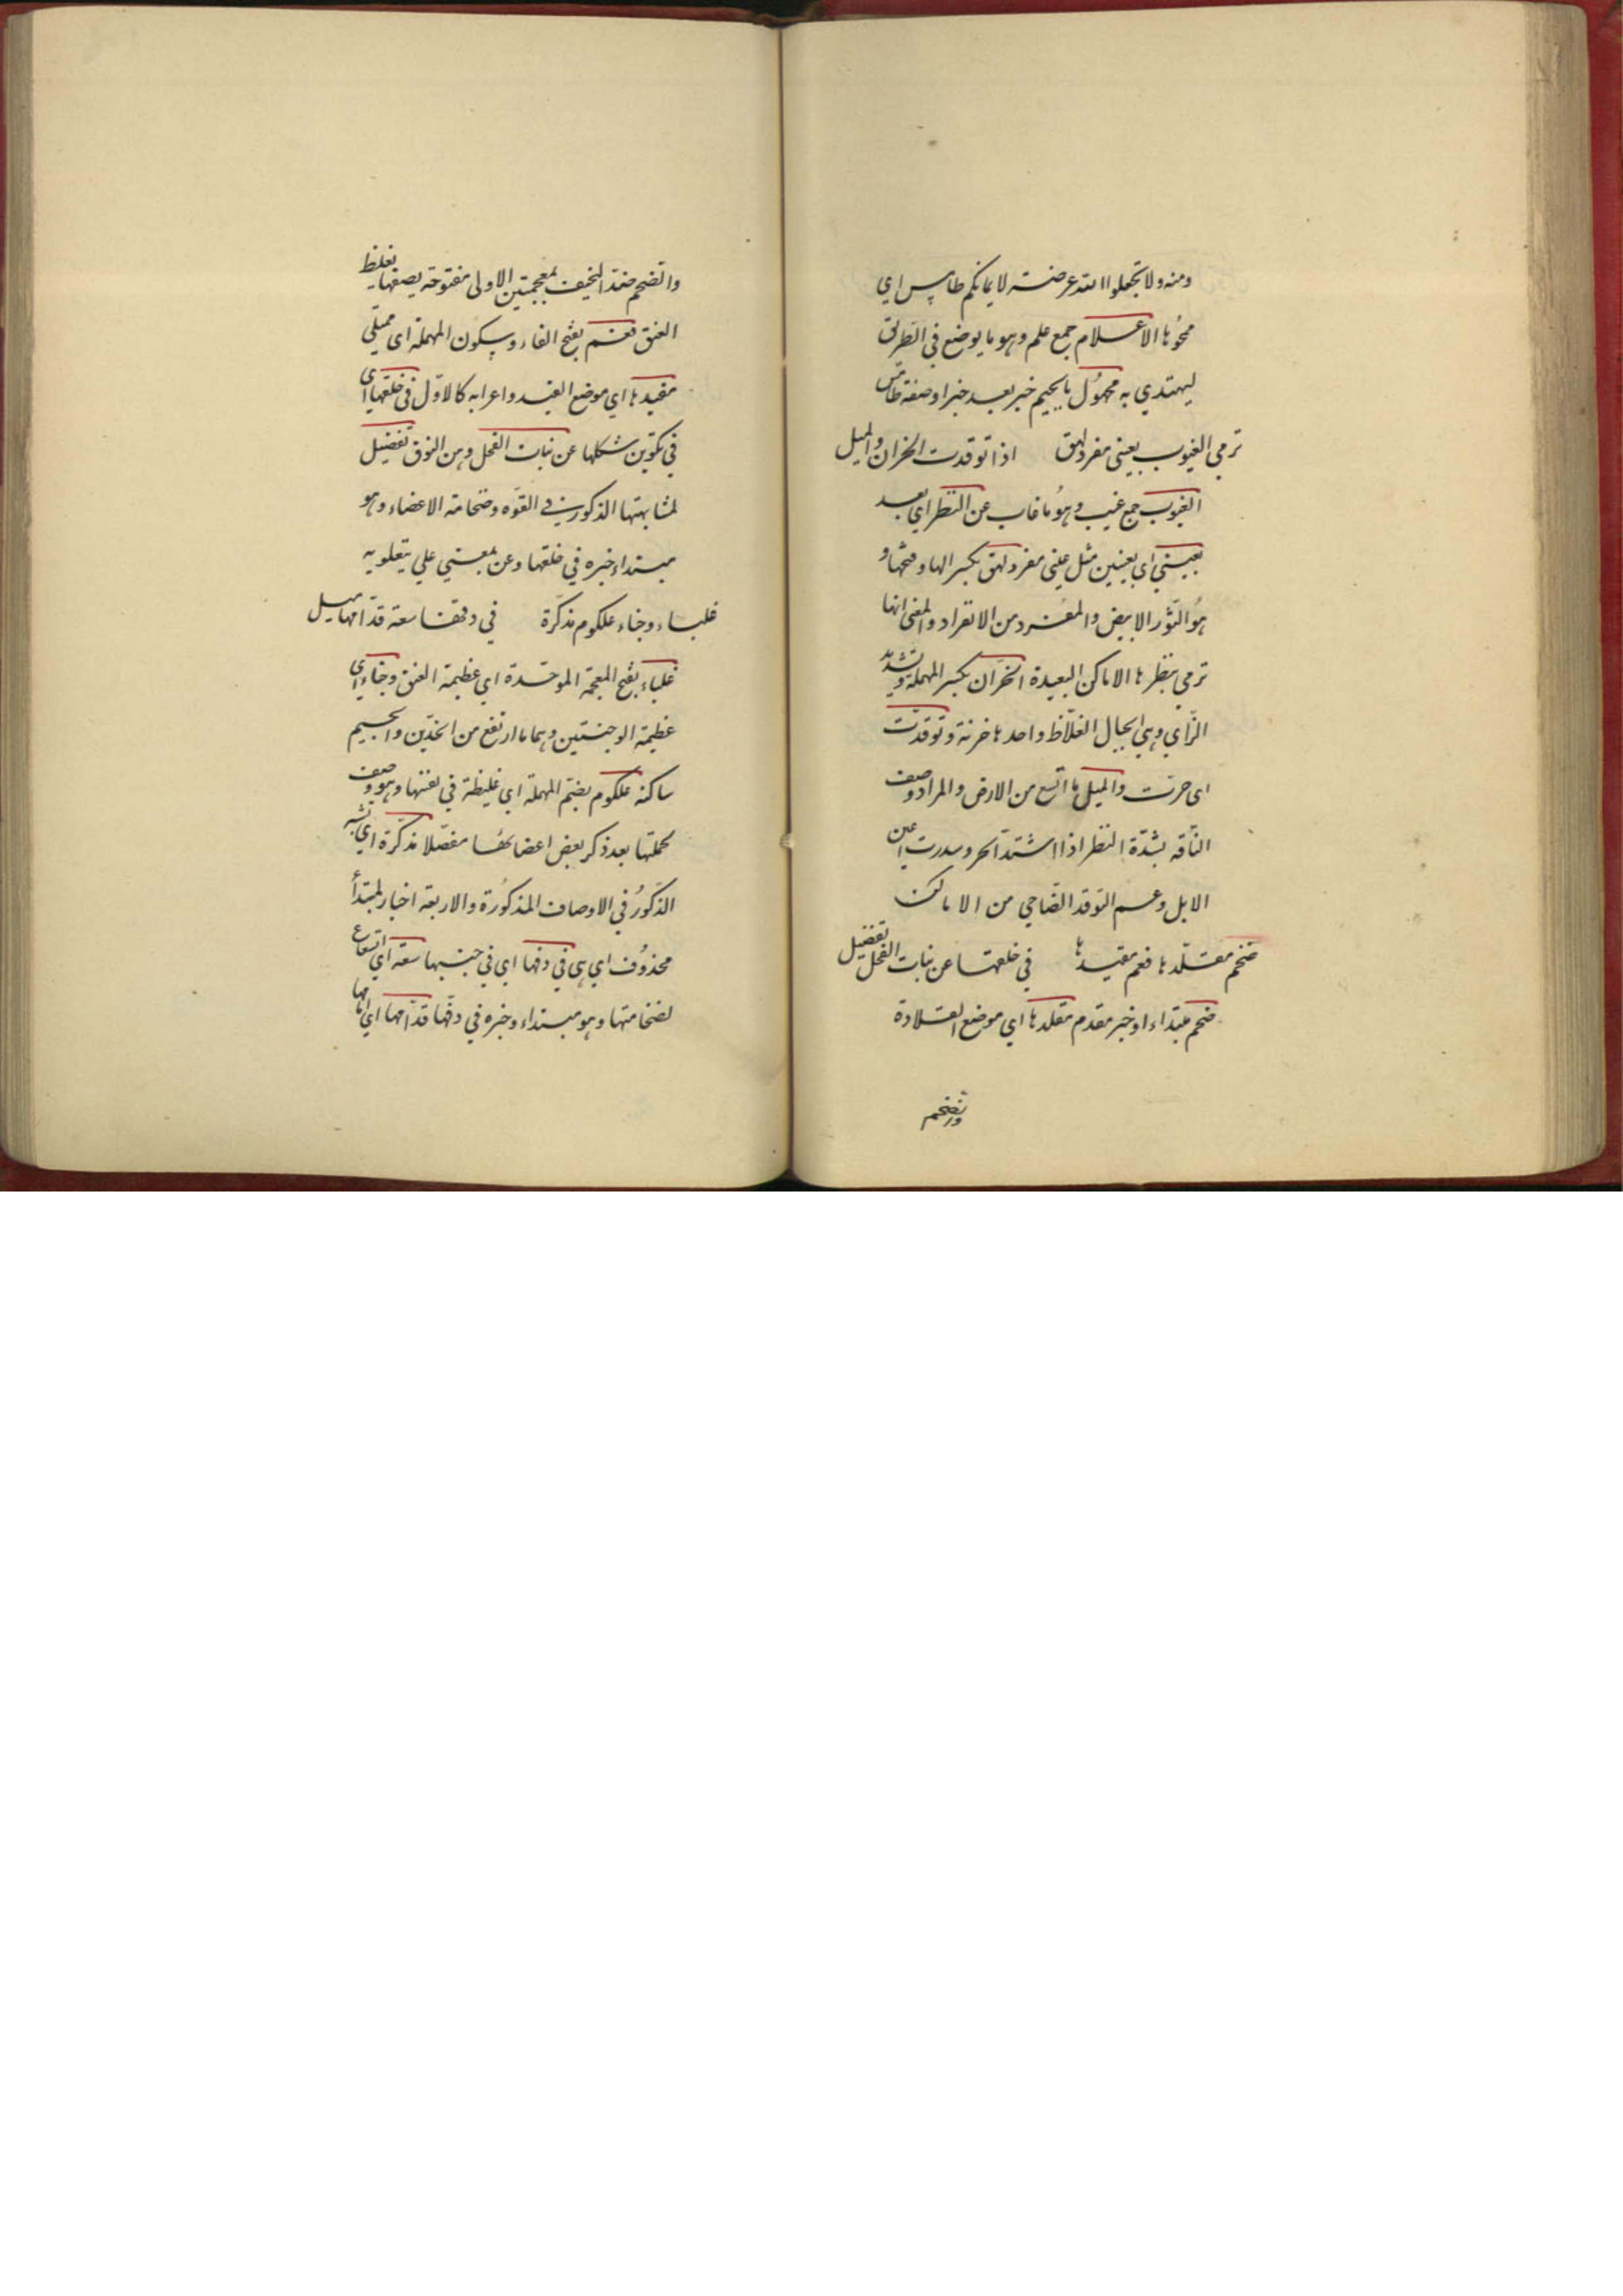 ومنه ولا تجعلوا الله عرضة لايمانكم طامس اي
محوها الاعلام جمع علم وهو ما يوضع في الطريق
ليهتدي به مجهول بالجيم خبر بعد خبر او صفة طامس
ترمي الغيوب بعيني مفرد لهق اذا توقدت الحزان والميل
الغيوب جمع غيب وهو ما غاب عن النظر اي بعد
بعيني اي بعينين مثل عيني مفرد لهق بكسر الها وفتحها و
هو الثور الابيض والمفرد من الانفراد والمعني انها
ترمي بنظرها الاماكن البعيدة الحزان بكسر المهملة وتشديد
الزاي وهي الجبال الغلاظ واحدها حزنة وتوقدت
اي حرت والميل ما اتسع من الارض والمراد وصف
الناقة بشدة النظر اذا اشتد الحر وسدرت اعين
الابل وعم التوقد الضاحي من الاماكن
ضخم مقلدها فعم مقيدها في خلقها عن بنات الفحل تفضيل
ضخم مبتداء او خبر مقدم مقلدها اي موضع القلادة
والضخم
والضخم ضد النحيف بمعجمتين الاولى مفتوحة يصفها بغلظ
العنق فعم بفتح الفاء وسكون المهملة اي ممتلي
مقيدها اي موضع القيد واعرابه كالاول في خلقها اي
في تكوين شكلها عن بنات الفحل وهن النوق تفضيل
لمشابهتها الذكور في القوه وضخامة الاعضاء وهو
مبتداء خبره في خلقها وعن بمعني علي يتعلق به
غلباء وجناء علكوم مذكرة في دفها سعة قدامها ميل
غلباء بفتح المعجمة الموحدة اي عظيمة العنق وجناء اي
عظيمة الوجنتين وهما ما ارتفع من الخدين والجيم
ساكنه علكوم بضم المهملة اي غليظة في نفسها وهو وصف
لجملتها بعد ذكر بعض اعضائها مفصلا مذكرة اي تشبه
الذكور في الاوصاف المذكورة والاربعة اخبار لمبتدأ
محذوف اي هي في دفها اي في جنبها سعة اي اتساع
لضخامتها وهو مبتداء وخبره في دفها قدامها اي امامها